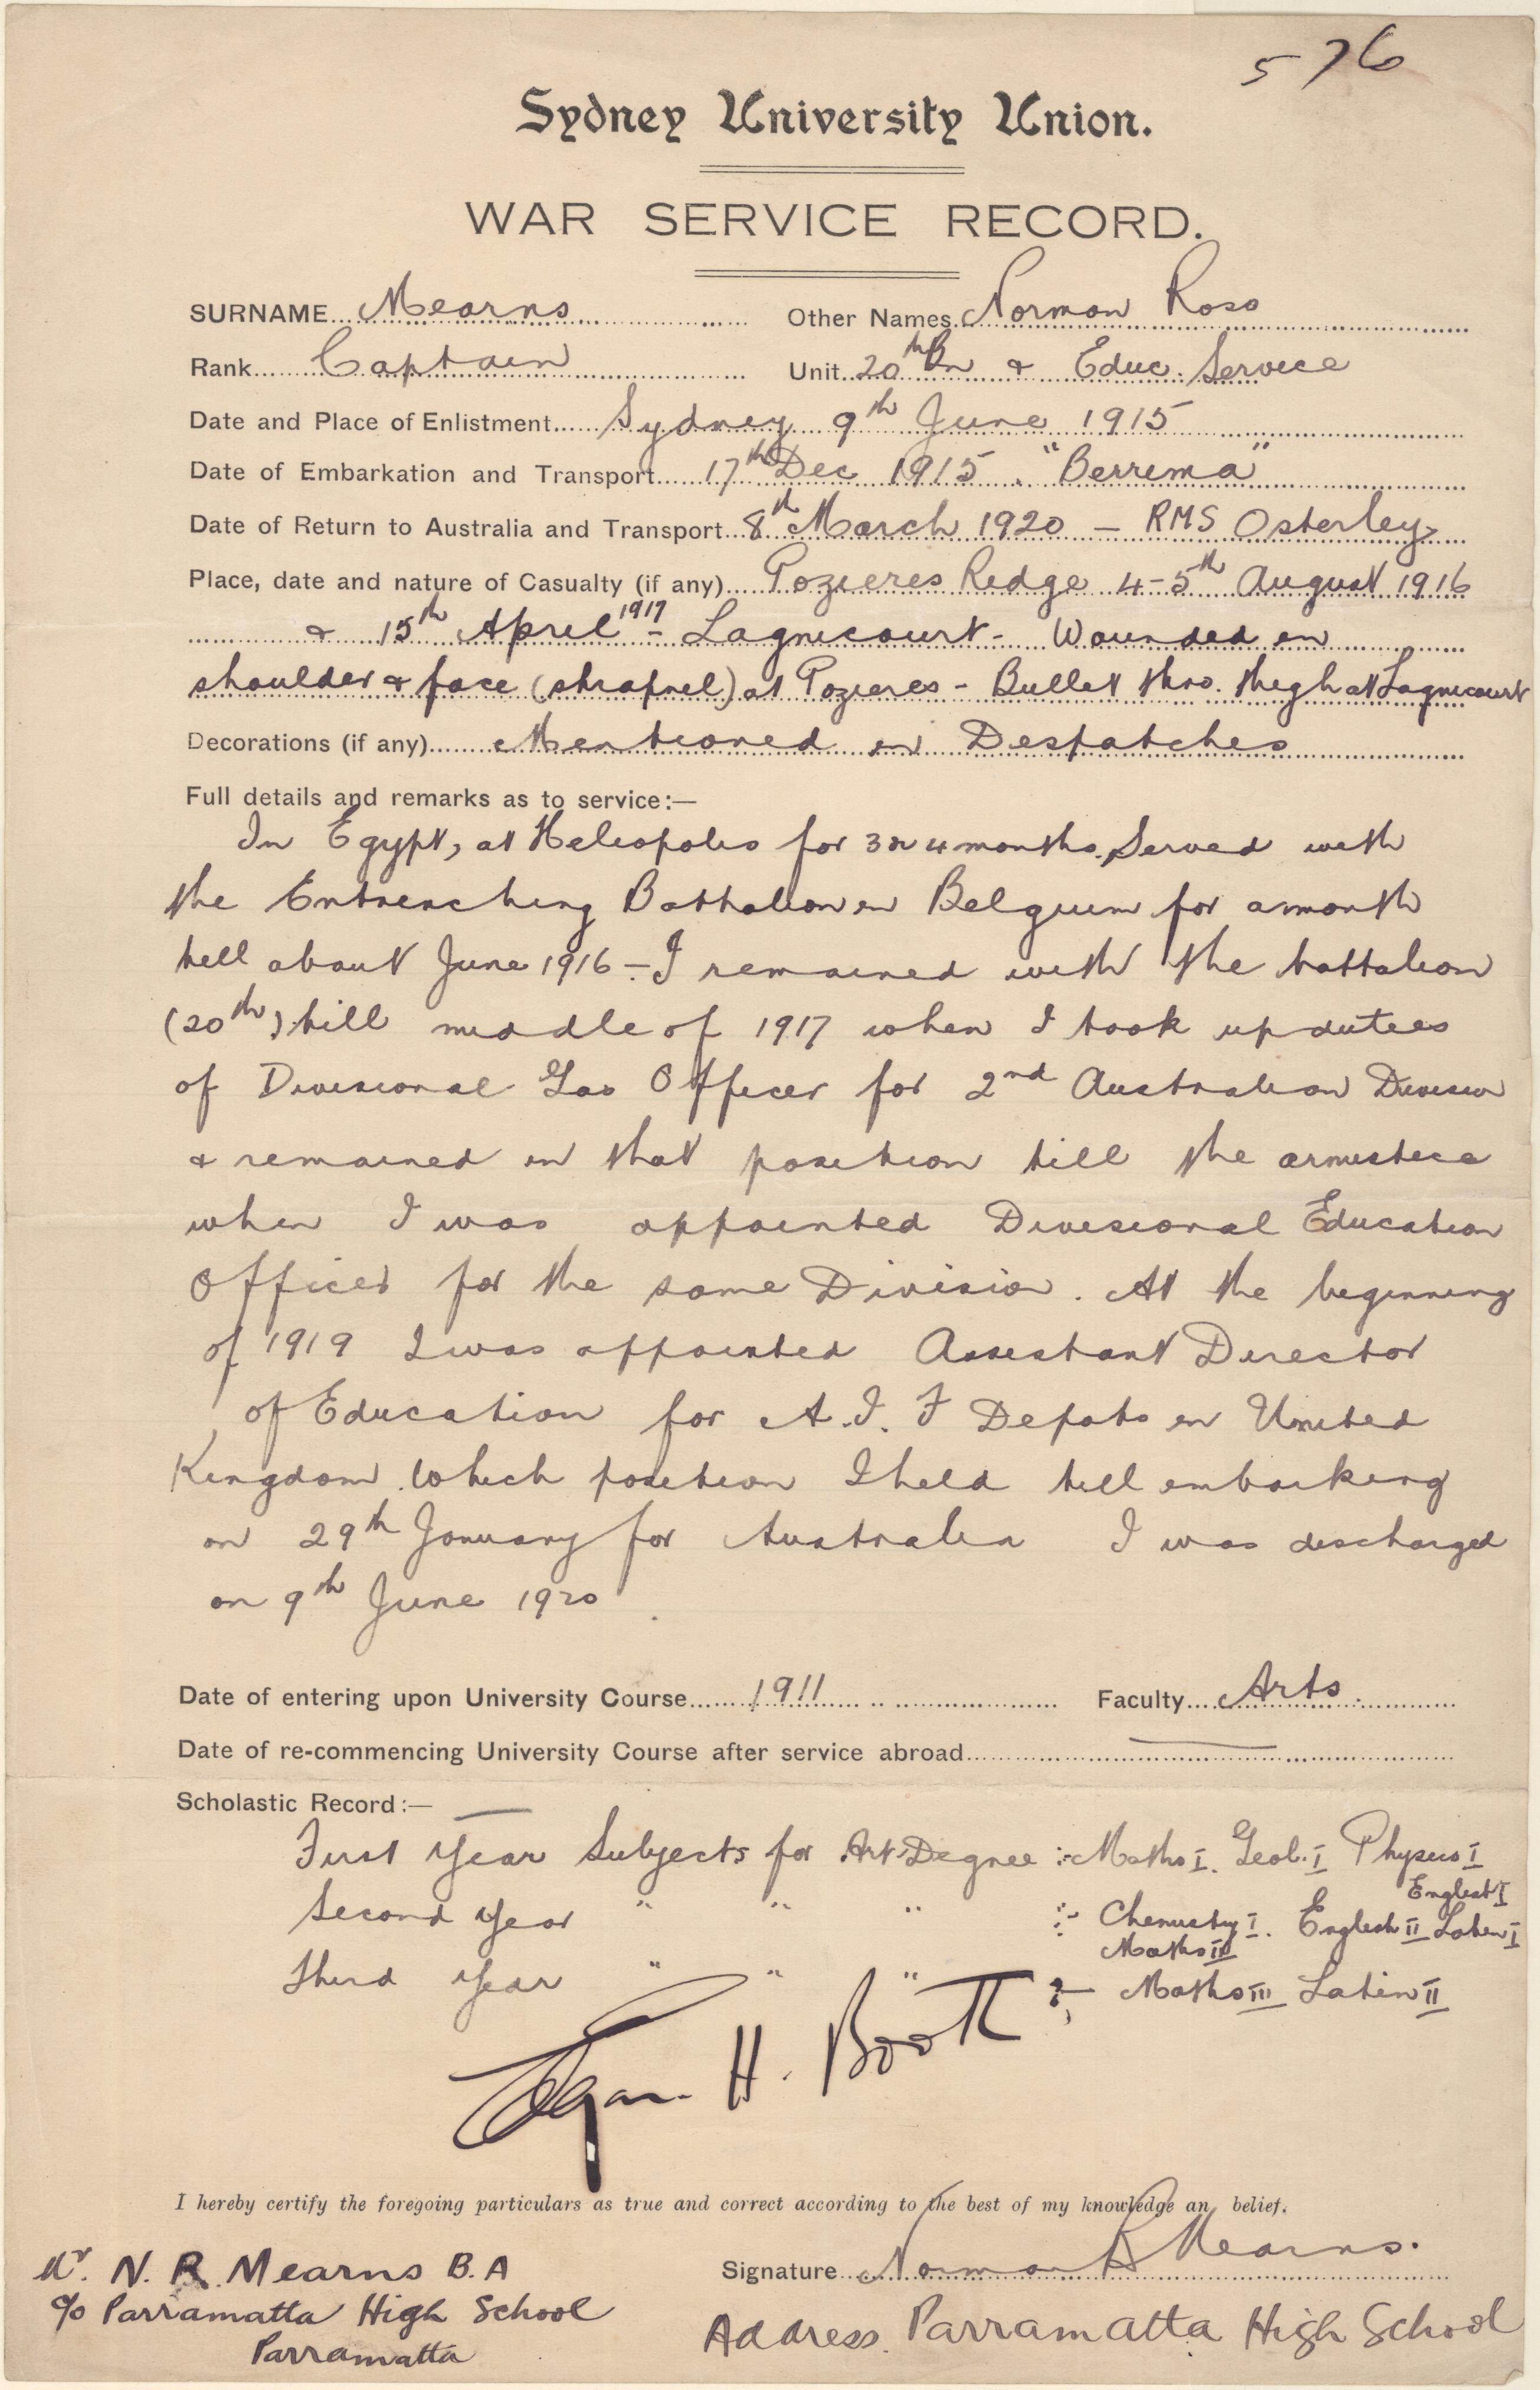 576
Sydney University Union.
WAR SERVICE RECORD.
SURNAME Mearns Other Names Norman Ross
Rank Captain Unit 20th Bn & Educ. Service
Date and Place of Enlistment Sydney 9th June 1915
Date of Embarkation and Transport 17th Dec 1915. "Berrima"
Date of Return to Australia and Transport 8th March 1920 – RMS Osterley
Place, date and nature of Casualty (if any) Pozieres Ridge 4-5th August 1916
& 15th April 1917 – Lagnicourt – Wounded in
shoulder & face (shrapnel) at Pozieres – Bullet thro. thigh at Lagnicourt
Decorations (if any) Mentioned in Despatches
Full details and remarks as to service:—
In Egypt, at Heliopolis for 3 or 4 months. Served with
the Entrenching Battalion in Belgium for a month
till about June 1916 – I remained with the battalion
(20th) till middle of 1917 when I took up duties
of Divisional Gas Officer for 2nd Australian Division
& remained in that position till the armistice
when I was appointed Divisional Education
Officer for the same Division. At the beginning
of 1919 I was appointed Assistant Director
of Education for A.I.F Depots in United
Kingdom. Which position I held till embarking
on 29th January for Australia I was discharged
on 9th June 1920
Date of entering upon University Course 1911 Faculty Arts
Date of re-commencing University Course after service abroad —
Scholastic Record:—
First Year Subjects for Art Degree :- Maths I. Geol. I Physics I
English I
Second Year " " " :- Chemistry I. English II Latin I
Maths II
Third Year " " " :- Maths III Latin II
Edgar H. Booth
I hereby certify the foregoing particulars as true and correct according to the best of my knowledge an belief.
Mr. N. R. Mearns B.A Signature Norman R Mearns.
c/o Parramatta High School Address. Parramatta High School
Parramatta